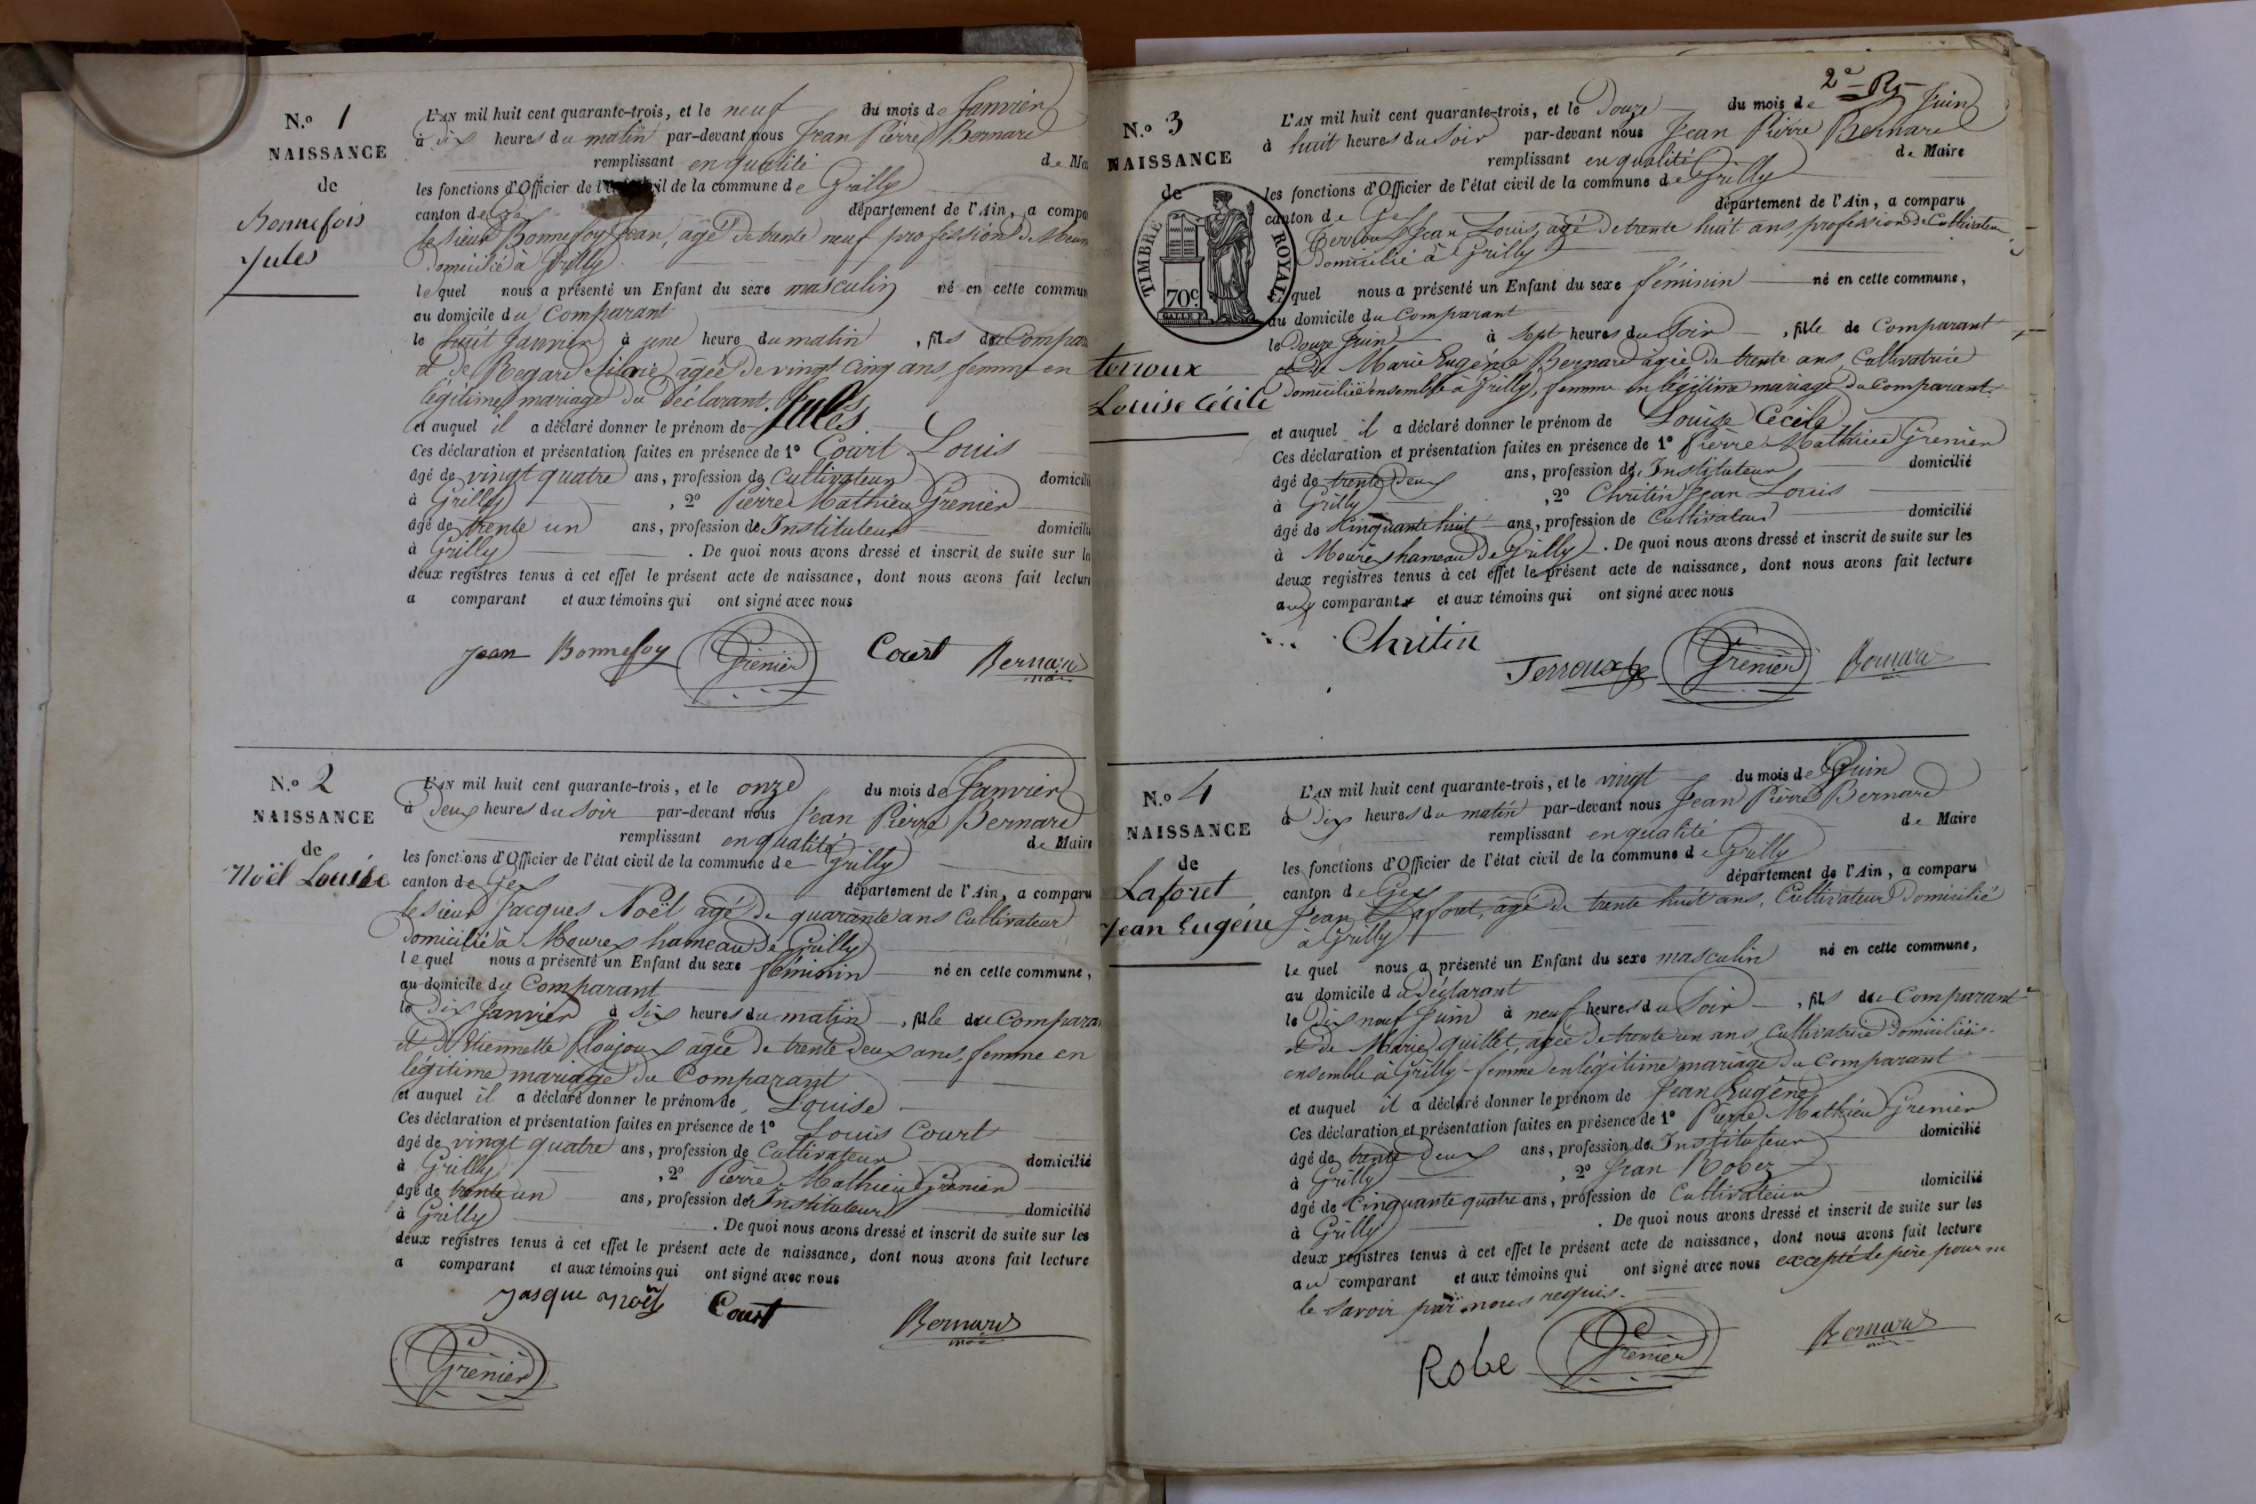 N.º 1
NAISSANCE
de
Bonnefois
Jules
L'AN mil huit cent quarante-trois, et le neuf du mois de Janvier
à dix heures du matin par-devant nous Jean Pierre Bernard
remplissant en qualité de Mai
les fonctions d'Officier de l'état civil de la commune de Grilly
canton de Gex département de l'Ain, a compa
le sieur Bonnefoy Jean, agé de trente neuf profession de Meun
domicilié à Grilly
lequel nous a présenté un Enfant du sexe masculin né en cette commun
au domicile du Comparant
le huit Janvier à une heure du matin, fils du Compar
et de Regard Silvie agée de vingt cinq ans, femme en
légitime mariage du déclarant.
et auquel il a déclaré donner le prénom de Jules
Ces déclaration et présentation faites en présence de 1º Court Louis
âgé de vingt quatre ans, profession de Cultivateur domicili
à Grilly, 2º Pierre Mathieu Grenier
âgé de trente un ans, profession de Instituteur domicili
à Grilly . De quoi nous avons dressé et inscrit de suite sur le
deux registres tenus à cet effet le présent acte de naissance, dont nous avons fait lecture
a comparant et aux témoins qui ont signé avec nous
Jean Bonnefoy Grenier Court Bernard
N.º 2
NAISSANCE
de
Noël Louise
L'AN mil huit cent quarante-trois, et le onze du mois de Janvier
à deux heures du soir par-devant nous Jean Pierre Bernard
remplissant en qualité de Maire
les fonctions d'Officier de l'état civil de la commune de Grilly
canton de Gex département de l'Ain, a comparu
le sieur Jacques Noël agé de quarante ans Cultivateur
domicilié à Mourex hameau de Grilly
lequel nous a présenté un Enfant du sexe féminin né en cette commune,
au domicile du Comparant
le dix Janvier à six heures du matin, fille du Compara
et d'Etiennette Ploujoux agée de trente deux ans, femme en
légitime mariage du Comparant
et auquel il a déclaré donner le prénom de Louise
Ces déclaration et présentation faites en présence de 1º Louis Court
âgé de vingt quatre ans, profession de Cultivateur domicilié
à Grilly, 2º Pierre Mathieu Grenier
âgé de trente un ans, profession de Instituteur domicilié
à Grilly . De quoi nous avons dressé et inscrit de suite sur les
deux registres tenus à cet effet le présent acte de naissance, dont nous avons fait lecture
a comparant et aux témoins qui ont signé avec nous
Jasque Noël Court Bernard
Grenier
2e
N.º 3
NAISSANCE
de
TIMBRE ROYAL
70c
terroux
Louise Cécile
L'AN mil huit cent quarante-trois, et le Douze du mois de Juin
à huit heures du Soir par-devant nous Jean Pierre Bernard
remplissant en qualité de Maire
les fonctions d'Officier de l'état civil de la commune de Grilly
canton de Gex département de l'Ain, a comparu
Terroux Jean Louis, agé de trente huit ans, profession de Cultivateur
domicilié à Grilly
quel nous a présenté un Enfant du sexe féminin né en cette commune,
au domicile du Comparant
le Douze Juin à Sept heures du Soir, fille de Comparant
et de Marie Eugénie Bernard agée de trente ans, Cultivatrice
domiciliée ensemble à Grilly, femme en légitime mariage du Comparant.
et auquel il a déclaré donner le prénom de Louise Cécile
Ces déclaration et présentation faites en présence de 1º Pierre Mathieu Grenier
âgé de trente deux ans, profession de Instituteur domicilié
à Grilly, 2º Chritin Jean Louis
âgé de Cinquante huit ans, profession de Cultivateur domicilié
à Mourex hameau de Grilly . De quoi nous avons dressé et inscrit de suite sur les
deux registres tenus à cet effet le présent acte de naissance, dont nous avons fait lecture
aux comparant et aux témoins qui ont signé avec nous
Chritin
Terroux Grenier Bernard
N.º 4
NAISSANCE
de
Laforet
Jean Eugéne
L'AN mil huit cent quarante-trois, et le vingt du mois de Juin
à Dix heures du matin par-devant nous Jean Pierre Bernard
remplissant en qualité de Maire
les fonctions d'Officier de l'état civil de la commune de Grilly
canton de Gex département de l'Ain, a comparu
Jean Laforet, agé de trente huit ans, Cultivateur Domicilié
à Grilly
le quel nous a présenté un Enfant du sexe masculin né en cette commune,
au domicile du Déclarant
le Dix neuf Juin à neuf heures du Soir, fils du Comparant
et de Marie Quillet, agée de trente un ans, Cultivatrice Domiciliée
ensemble à Grilly femme en légitime mariage du Comparant
et auquel il a déclaré donner le prénom de Jean Eugène
Ces déclaration et présentation faites en présence de 1º Pierre Mathieu Grenier
âgé de trente deux ans, profession de Instituteur domicilié
à Grilly, 2º Jean Robez
âgé de Cinquante quatre ans, profession de Cultivateur domicilié
à Grilly . De quoi nous avons dressé et inscrit de suite sur les
deux registres tenus à cet effet le présent acte de naissance, dont nous avons fait lecture
au comparant et aux témoins qui ont signé avec nous excepté le père pour ne
le savoir par nous requis.
Robe Grenier Bernard